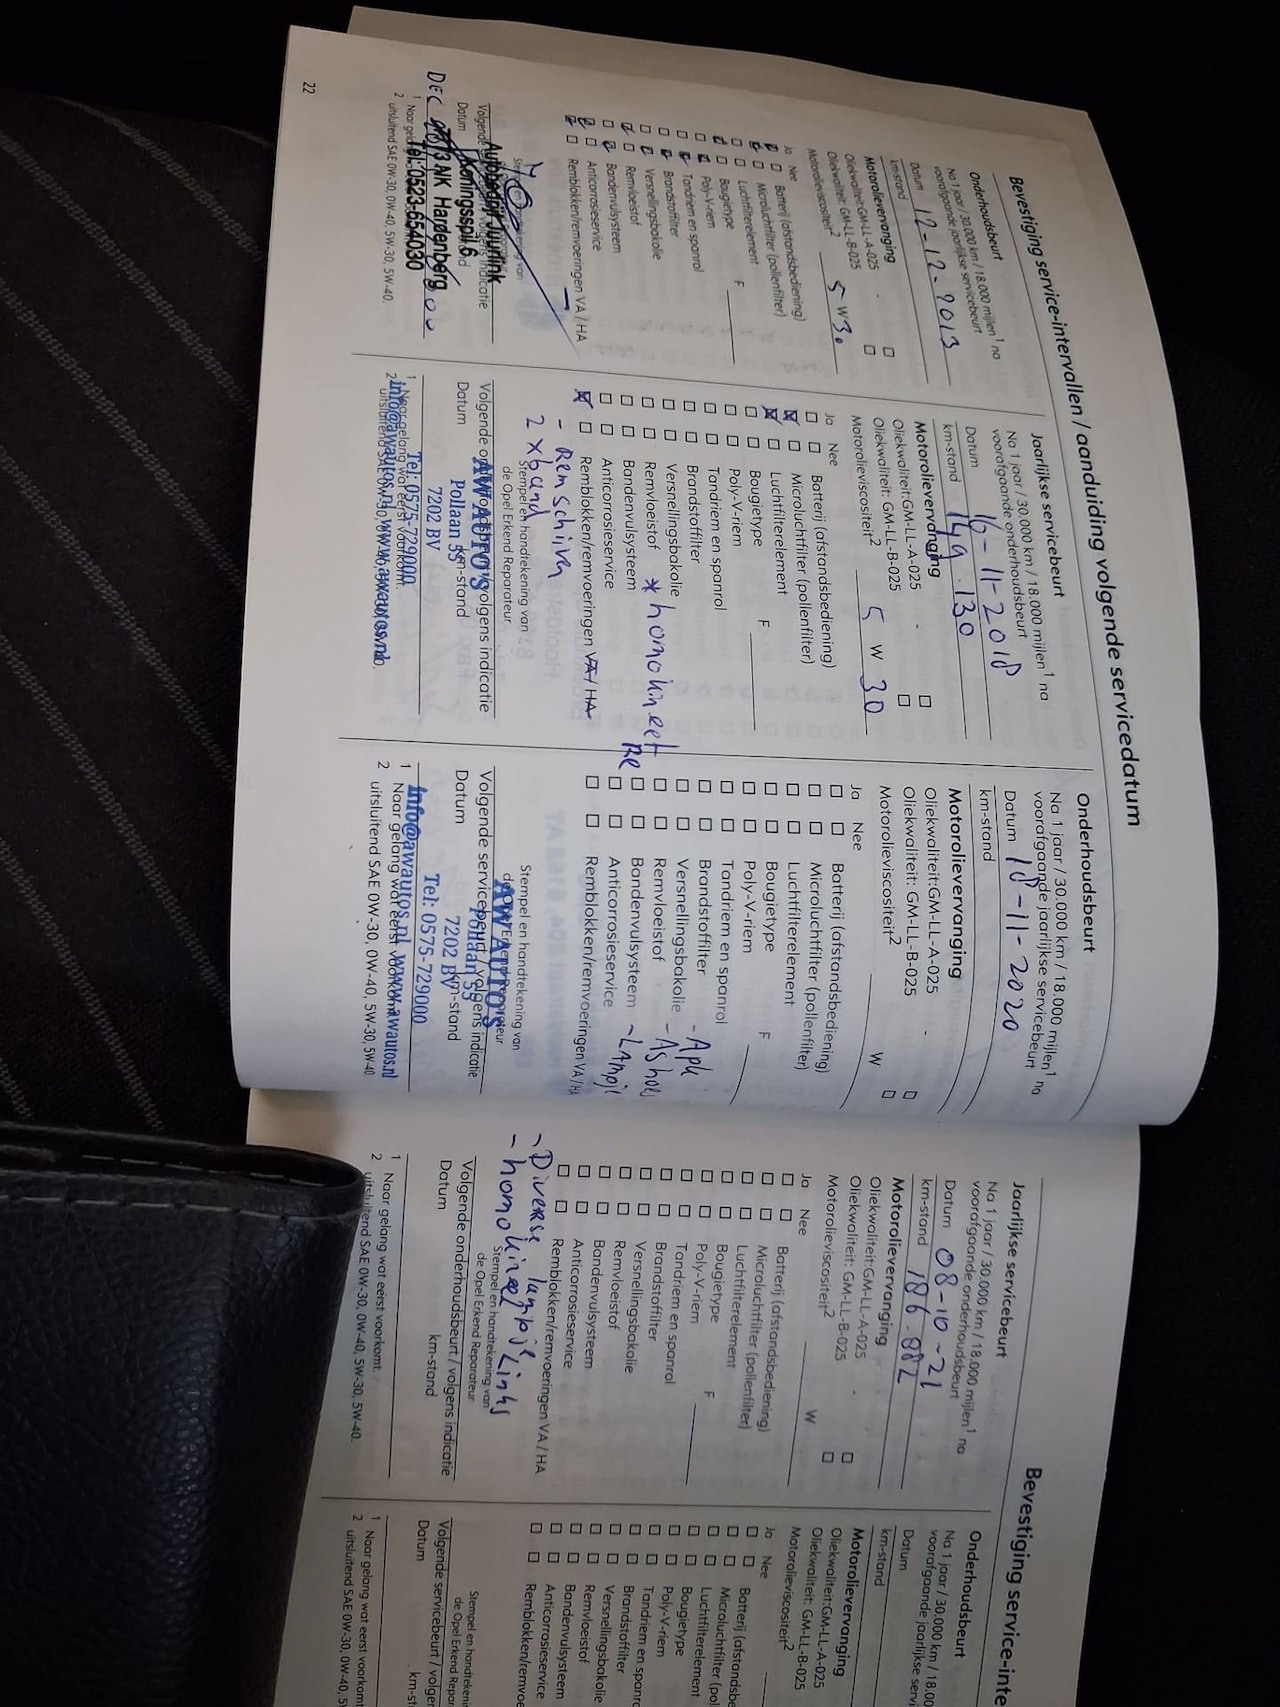 Bevestiging service-intervallen / aanduiding volgende servicedatum
Onderhoudsbeurt
Na 1 jaar / 30.000 km / 18.000 mijlen¹ na
voorafgaande jaarlijkse servicebeurt
Datum 12-12-2013
km-stand
Motorolievervanging
Oliekwaliteit:GM-LL-A-025 -
Oliekwaliteit: GM-LL-B-025
Motorolieviscositeit² 5 W 30
Ja Nee
Batterij (afstandsbediening)
Microluchtfilter (pollenfilter)
Luchtfilterelement
Bougietype F
Poly-V-riem
Tandriem en spanrol
Brandstoffilter
Versnellingsbakolie
Remvloeistof
Bandenvulsysteem
Anticorrosieservice
Remblokken/remvoeringen VA / HA
Autobedrijf Juurlink
Koningsspil 6
7773 NK Hardenberg
Tel: 0523-654030
Datum
DEC
1 Naar
2 uitsluitend SAE 0W-30, 0W-40, 5W-30, 5W-40.
22
Jaarlijkse servicebeurt
Na 1 jaar / 30.000 km / 18.000 mijlen¹ na
voorafgaande onderhoudsbeurt
Datum 16-11-2018
km-stand 149.130
Motorolievervanging
Oliekwaliteit:GM-LL-A-025 -
Oliekwaliteit: GM-LL-B-025
Motorolieviscositeit² 5 W 30
Ja Nee
Batterij (afstandsbediening)
Microluchtfilter (pollenfilter)
Luchtfilterelement
Bougietype F
Poly-V-riem
Tandriem en spanrol
Brandstoffilter
Versnellingsbakolie
Remvloeistof * homokineet Re
Bandenvulsysteem
Anticorrosieservice
Remblokken/remvoeringen VA / HA
- Remschiven
2 x band
Stempel en handtekening van
de Opel Erkend Reparateur
Volgende volgens indicatie
AW AUTO'S
Datum km-stand
Pollaan 55
7202 BV
Tel: 0575-729000
1 Naar gelang wat eerst voorkomt.
info@awautos.nl www.awautos.nl
Onderhoudsbeurt
Na 1 jaar / 30.000 km / 18.000 mijlen¹ na
voorafgaande jaarlijkse servicebeurt
Datum 18-11-2020
km-stand
Motorolievervanging
Oliekwaliteit:GM-LL-A-025 -
Oliekwaliteit: GM-LL-B-025
Motorolieviscositeit² W
Ja Nee
Batterij (afstandsbediening)
Microluchtfilter (pollenfilter)
Luchtfilterelement
Bougietype F
Poly-V-riem
Tandriem en spanrol
Brandstoffilter
Versnellingsbakolie - Apk
Remvloeistof - Ashoes
Bandenvulsysteem - Lampje
Anticorrosieservice
Remblokken/remvoeringen VA / HA
Stempel en handtekening van
AW AUTO'S
Volgende servicebeurt / volgens indicatie
Pollaan 55
Datum km-stand
7202 BV
Tel: 0575-729000
1 Naar gelang wat eerst voorkomt
info@awautos.nl www.awautos.nl
2 uitsluitend SAE 0W-30, 0W-40, 5W-30, 5W-40
Bevestiging service-inte
Jaarlijkse servicebeurt
Na 1 jaar / 30.000 km / 18.000 mijlen¹ na
voorafgaande onderhoudsbeurt
Datum 08-10-21
km-stand 186.882
Motorolievervanging
Oliekwaliteit:GM-LL-A-025 -
Oliekwaliteit: GM-LL-B-025
Motorolieviscositeit² W
Ja Nee
Batterij (afstandsbediening)
Microluchtfilter (pollenfilter)
Luchtfilterelement
Bougietype F
Poly-V-riem
Tandriem en spanrol
Brandstoffilter
Versnellingsbakolie
Remvloeistof
Bandenvulsysteem
Anticorrosieservice
Remblokken/remvoeringen VA / HA
- Diverse lampje
- homokineet Links
Stempel en handtekening van
de Opel Erkend Reparateur
Volgende onderhoudsbeurt / volgens indicatie
Datum km-stand
1 Naar gelang wat eerst voorkomt.
2 uitsluitend SAE 0W-30, 0W-40, 5W-30, 5W-40.
Onderhoudsbeurt
Na 1 jaar / 30.000 km / 18.00
voorafgaande jaarlijkse servi
Datum
km-stand
Motorolievervanging
Oliekwaliteit:GM-LL-A-025
Oliekwaliteit: GM-LL-B-025
Motorolieviscositeit²
Ja Nee
Batterij (afstandsbe
Microluchtfilter (pol
Luchtfilterelement
Bougietype
Poly-V-riem
Tandriem en spanro
Brandstoffilter
Versnellingsbakolie
Remvloeistof
Bandenvulsysteem
Anticorrosieservice
Remblokken/remvoe
Stempel en handtekeni
de Opel Erkend Repar
Volgende servicebeurt / volger
Datum km-st
1 Naar gelang wat eerst voorkomt
2 uitsluitend SAE 0W-30, 0W-40, 5